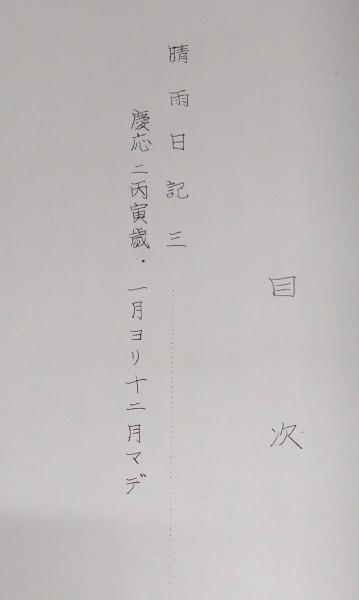 目次
晴雨日記三
慶応二丙寅歳・一月ヨリ十二月マデ